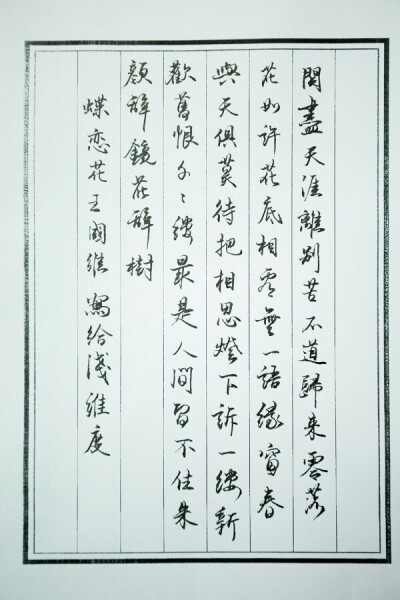 閱盡天涯離別苦不道歸来零落
花如許花底相看無一語緑窗春
與天俱莫待把相思燈下訴一縷新
歡舊恨千々縷最是人間留不住朱
顏辞鏡花辞樹
蝶恋花王國維寫給淺維度